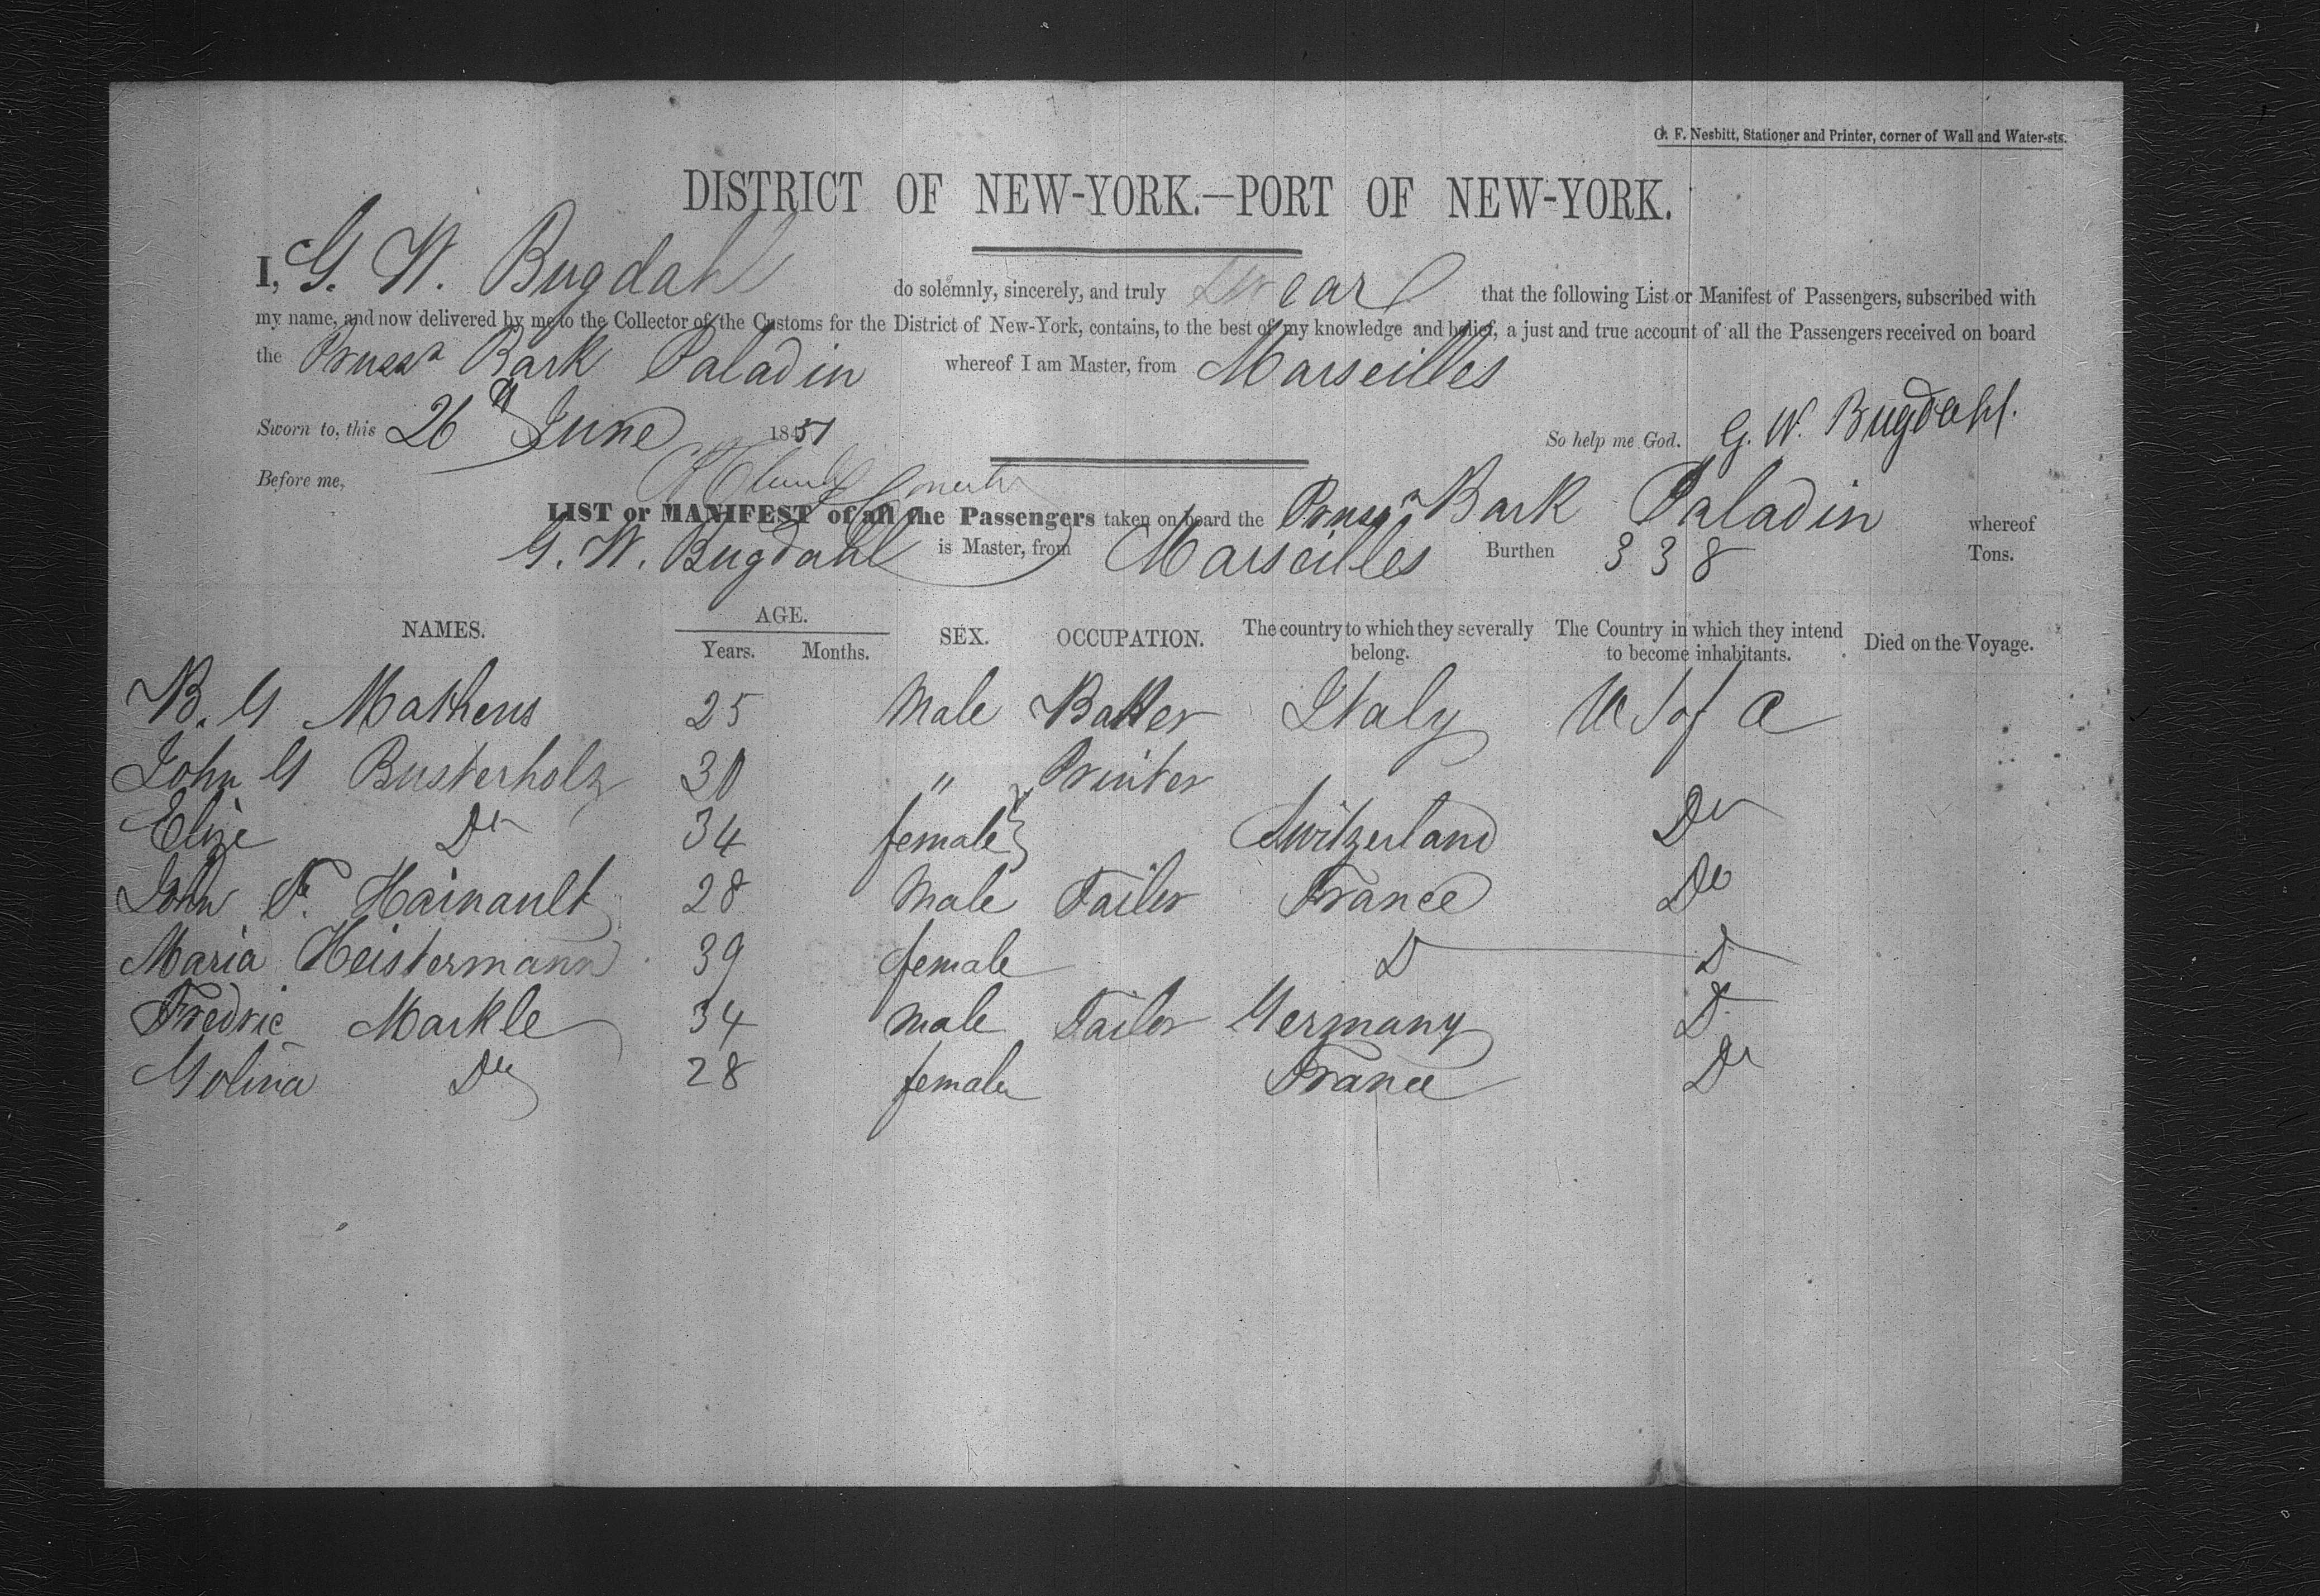 G. F. Nesbitt, Stationer and Printer, corner of Wall and Water-sts.
DISTRICT OF NEW-YORK.—PORT OF NEW-YORK.
I, G. W. Bugdahl do solemnly, sincerely, and truly swear that the following List or Manifest of Passengers, subscribed with
my name, and now delivered by me to the Collector of the Customs for the District of New-York, contains, to the best of my knowledge and belief, a just and true account of all the Passengers received on board
the Pruss<sup>n</sup> Bark Paladin whereof I am Master, from Marseilles
Sworn to, this 26th June 1851 So help me God. G. W. Bugdahl.
Before me,
LIST or MANIFEST of all the Passengers taken on board the Pruss<sup>n</sup> Bark Paladin whereof
G. W. Bugdahl is Master, from Marseilles Burthen 338 Tons.
NAMES. AGE. SEX. OCCUPATION. The country to which they severally belong. The Country in which they intend to become inhabitants. Died on the Voyage.
Years. Months.
B. G Matheus 25 Male Baker Italy U S of A
John G Busterholz 30 " Printer
Elize Do 34 female } Switzerland Do
John F. Hainault 28 Male Tailor France Do
Maria Heistermann 39 female D D
Fredric Markle 34 male Tailor Germany D
Golina Do 28 female France Do